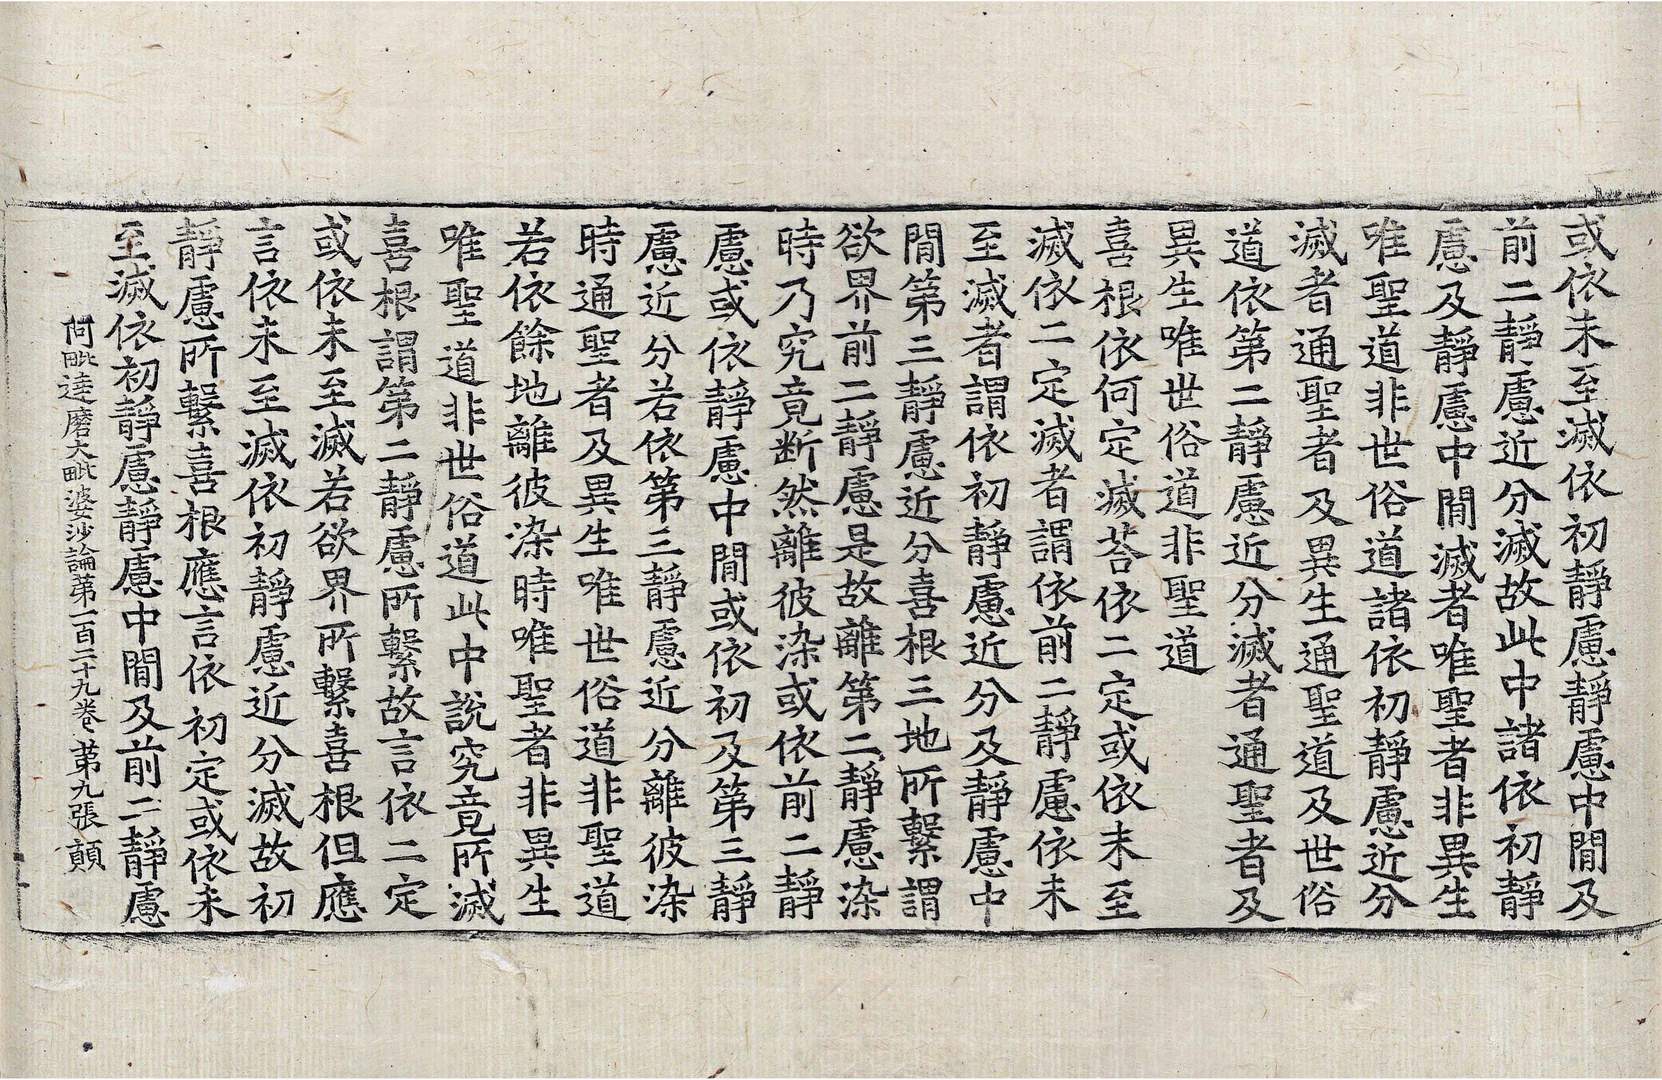 或依未至滅依初靜慮靜慮中閒及
前二靜慮近分滅故此中諸依初靜
慮及靜慮中閒滅者唯聖者非異生
唯聖道非世俗道諸依初靜慮近分
滅者通聖者及異生通聖道及世俗
道依第二靜慮近分滅者通聖者及
異生唯世俗道非聖道
喜根依何定滅荅依二定或依未至
滅依二定滅者謂依前二靜慮依未
至滅者謂依初靜慮近分及靜慮中
閒第三靜慮近分喜根三地所繫謂
欲界前二靜慮是故離第二靜慮染
時乃究竟断然離彼染或依前二靜
慮或依靜慮中閒或依初及第三靜
慮近分若依第三靜慮近分離彼染
時通聖者及異生唯世俗道非聖道
若依餘地離彼染時唯聖者非異生
唯聖道非世俗道此中說究竟所滅
喜根謂第二靜慮所繫故言依二定
或依未至滅若欲界所繫喜根但應
言依未至滅依初靜慮近分滅故初
靜慮所繫喜根應言依初定或依未
至滅依初靜慮靜慮中閒及前二靜慮
阿毗達磨大毗婆沙論第一百二十九卷 第九張 顛